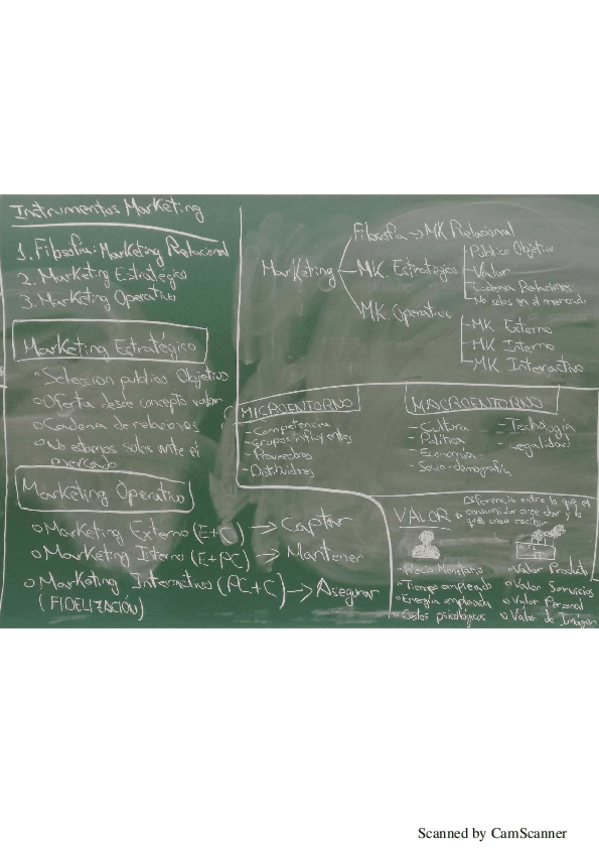 Instrumentos Marketing
1. Filosofía: Marketing Relacional
2. Marketing Estratégico
3. Marketing Operativo
Marketing Estratégico
Selección publico Objetivo
Oferta desde concepto valor
Cadena de relaciones
No estamos solos ante el
mercado
Marketing Operativo
Marketing Externo (E+C) → Captar
Marketing Interno (E+PC) → Mantener
Marketing Interactivo (PC+C) → Asegurar
(FIDELIZACIÓN)
Marketing
Filosofía → MK Relacional
MK. Estratégico
- Público Objetivo
- Valor
- Cadena Relaciones
- No solos en el mercado
MK Operativo
- MK Externo
- MK Interno
- MK Interactivo
MICROENTORNO
- Competencia
- Grupos influyentes
- Proveedores
- Distribuidores
MACROENTORNO
- Cultura
- Política
- Economía
- Socio-demografía
- Tecnología
- Legalidad
VALOR
Diferencia entre lo que el
consumidor cree dar y lo
que cree recibir
Precio Monetario
Tiempo empleado
Energía empleada
Costos psicológicos
Valor Producto
Valor Servicios
Valor Personal
Valor de Imagen
Scanned by CamScanner